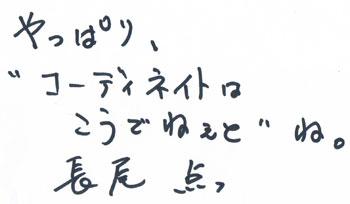 やっぱり、
"コーディネイトは
こうでねぇと"ね。
長尾 点